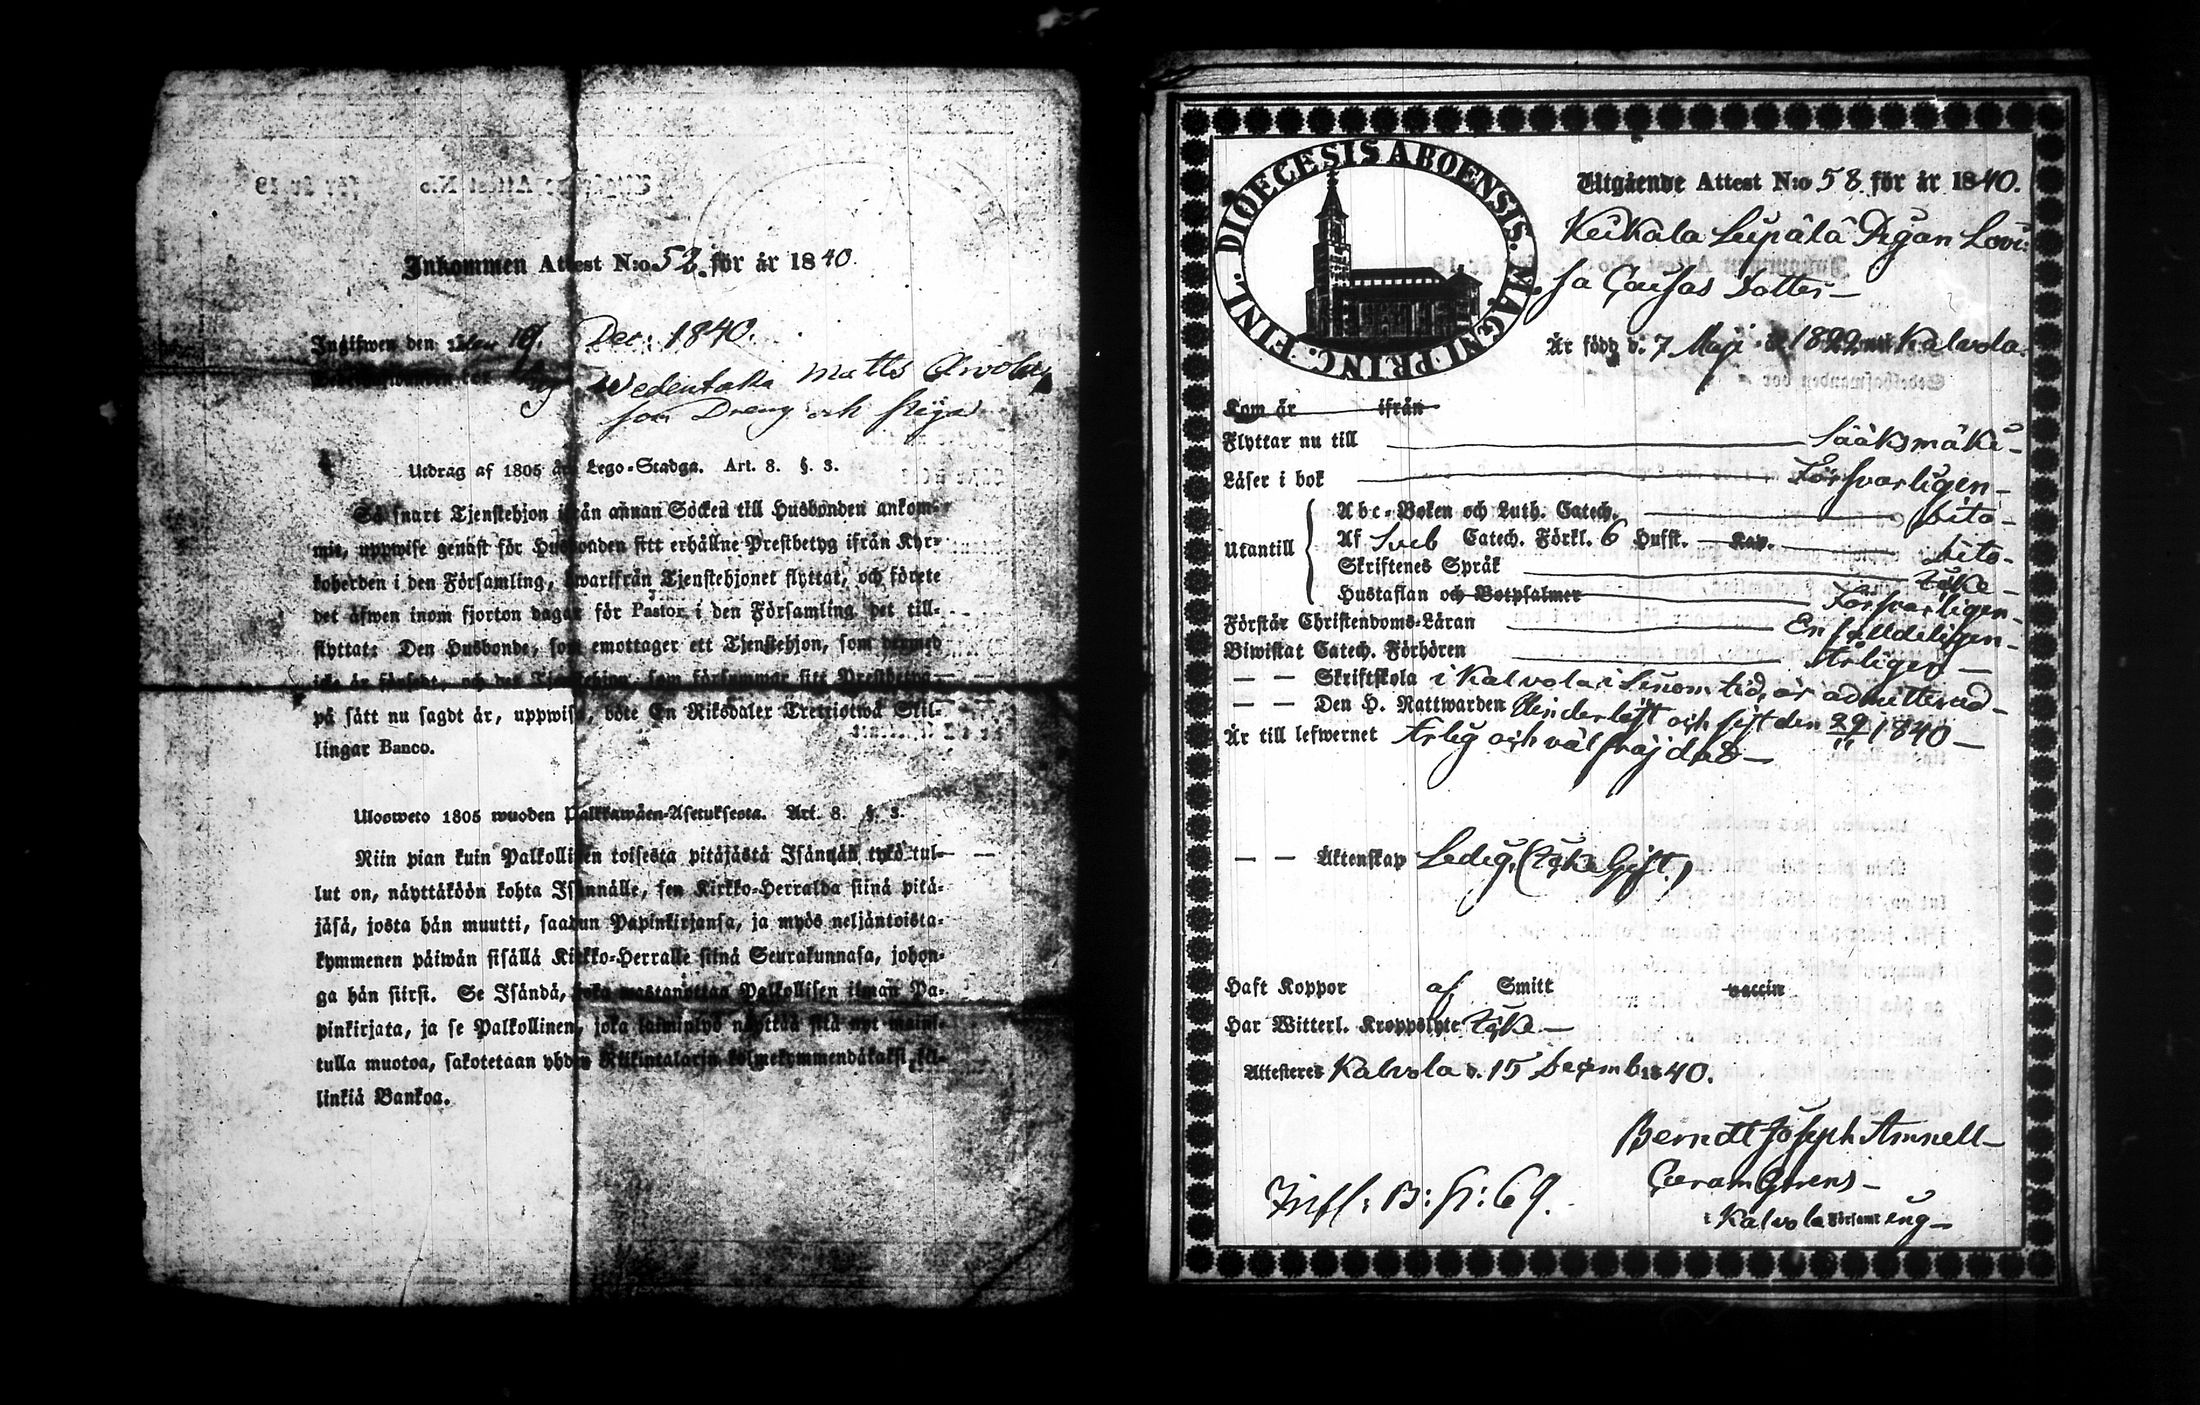 Inkommen Attest N:o 52. för år 1840.
Ingifwen den 19. Dec: 1840.
Wedentaka Matts
som Dreng och Piga
Utdrag af 1805 års Lego-Stadga. Art. 8. §. 3.
Så snart Tjenstehjon ifrån annan Söcken till Husbonden ankom-
mit, uppwise genast för Husbonden sitt erhållne Prestbetyg ifrån Kyr-
koherden i den Församling, hwarifrån Tjenstehjonet flyttat, och förete
det äfwen inom fjorton dagar för Pastor i den Församling det till-
flyttat: Den Husbonde, som emottager ett Tjenstehjon, som dermed
icke är försedt, och det Tjenstehjon, som försummar sitt Prestbetyg
på sätt nu sagdt är, uppwisa, böte En Riksdaler Trettiotwå Skil-
lingar Banco.
Ulosweto 1805 wuoden Palkkawäen-Asetuksesta. Art. 8. §. 3.
Niin pian kuin Palkollinen toisesta pitäjästä Isännän tykö tul-
lut on, näyttäköön kohta Isännälle, sen Kirkko-Herralda siinä pitä-
jäsä, josta hän muutti, saadun Papinkirjansa, ja myös neljäntoista-
kymmenen päiwän sisällä Kirkko-Herralle siinä Seurakunnasa, johon-
ga hän siirsi. Se Isändä, joka wastanottaa Palkollisen ilman Pa-
pinkirjata, ja se Palkollinen, joka laiminlyö näyttää sitä nyt mainit-
tulla muotoa, sakotetaan yhden Riikintalarin kolmekymmendäkaksi kil-
linkiä Bankoa.
DIOECESIS ABOENSIS. MAGNI PRINC. FINL.
Utgående Attest N:o 58. för år 1840.
Keikala Leipälä Pigan Lovi-
sa Caisas Dotter
Är född d. 7 Maji 1822 Kalvola.
Kom år ifrån
Flyttar nu till Sääksmäki
Läser i bok Försvarligen
Utantill
Abc-Boken och Luth. Catech. dito
Af Sveb Catech. Förkl. 6 Hufst. Kap. dito
Skriftenes Språk icke
Hustaflan och Botpsalmer Försvarligen
Förstår Christendoms-Läran Enfaldeligen
Biwistat Catech. Förhören Årligen
— — Skriftskola i Kalvola i sinom tid, är admitterad
— — Den H. Nattwarden Hinderlöst och sist den 29/11 1840
Är till lefwernet Ärlig och väl fräjdad
— — Äktenskap Ledig, (icke Gift.)
Haft Koppor af Smitt vaccin
Har Witterl. Kroppslyte icke
Attesteras Kalvola d. 15 Decemb 1840.
Berndt Joseph Amnell
i Kalvola Församl eng
Infl: B: p: 69.